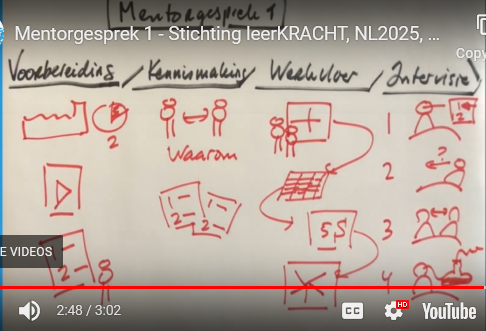 Mentorgesprek 1
Mentorgesprek 1 - Stichting leerKRACHT, NL2025, ...
Copy
Voorbereiding / Kennismaking / Werkvloer / Intervisie
1
2
2
Waarom
?
2
2 2
3
5S
2
4
E VIDEOS
2:48 / 3:02
CC
HD
YouTube